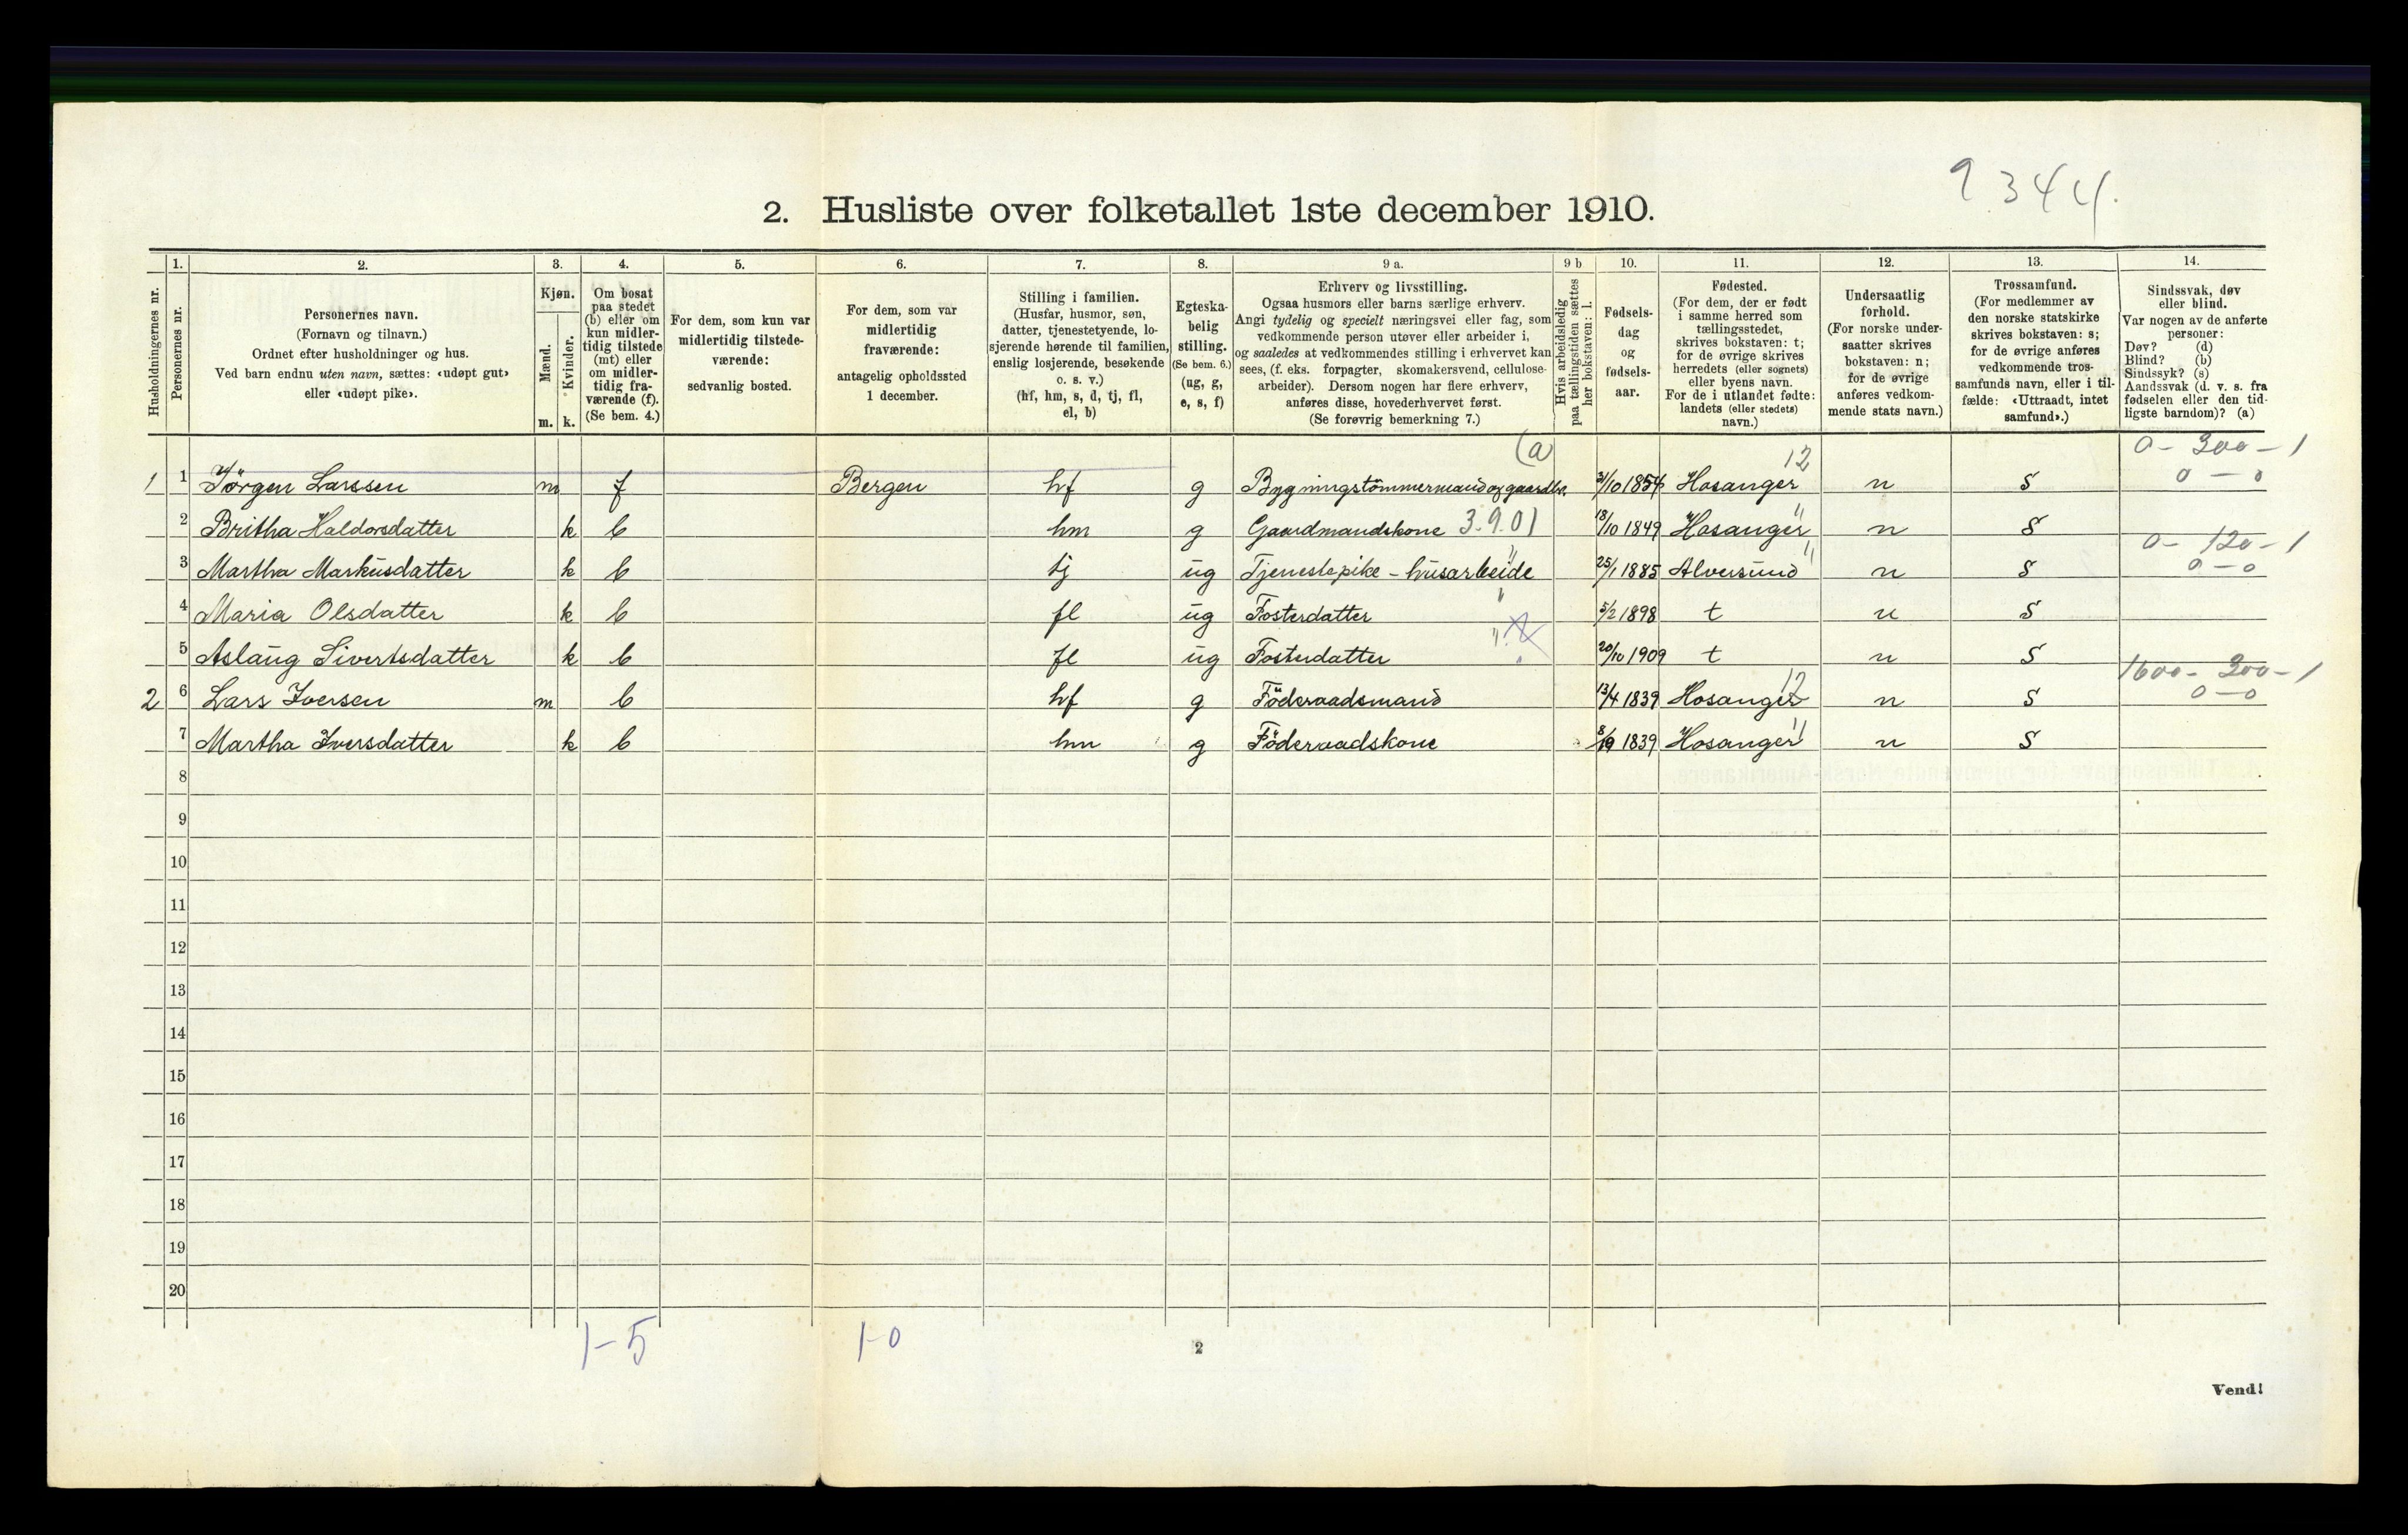 9344.
2. Husliste over folketallet 1ste december 1910.
Husholdningernes nr.
1. Personernes nr.
2. Personernes navn.
(Fornavn og tilnavn.)
Ordnet efter husholdninger og hus.
Ved barn endnu uten navn, sættes: «udøpt gut»
eller «udøpt pike».
3. Kjøn.
Mænd. m.
Kvinder. k.
4. Om bosat
paa stedet
(b) eller om
kun midler-
tidig tilstede
(mt) eller
om midler-
tidig fra-
værende (f).
(Se bem. 4.)
5. For dem, som kun var
midlertidig tilstede-
værende:
sedvanlig bosted.
6. For dem, som var
midlertidig
fraværende:
antagelig opholdssted
1 december.
7. Stilling i familien.
(Husfar, husmor, søn,
datter, tjenestetyende, lo-
sjerende hørende til familien,
enslig losjerende, besøkende
o. s. v.)
(hf, hm, s, d, tj, fl,
el, b)
8. Egteska-
belig
stilling.
(Se bem. 6.)
(ug, g,
e, s, f)
9 a. Erhverv og livsstilling.
Ogsaa husmors eller barns særlige erhverv.
Angi tydelig og specielt næringsvei eller fag, som
vedkommende person utøver eller arbeider i,
og saaledes at vedkommendes stilling i erhvervet kan
sees, (f. eks. forpagter, skomakersvend, cellulose-
arbeider). Dersom nogen har flere erhverv,
anføres disse, hovederhvervet først.
(Se forøvrig bemerkning 7.)
9 b Hvis arbeidsledig
paa tællingstiden sættes
her bokstaven: l.
10. Fødsels-
dag
og
fødsels-
aar.
11. Fødested.
(For dem, der er født
i samme herred som
tællingsstedet,
skrives bokstaven: t;
for de øvrige skrives
herredets (eller sognets)
eller byens navn.
For de i utlandet fødte:
landets (eller stedets)
navn.)
12. Undersaatlig
forhold.
(For norske under-
saatter skrives
bokstaven: n;
for de øvrige
anføres vedkom-
mende stats navn.)
13. Trossamfund.
(For medlemmer av
den norske statskirke
skrives bokstaven: s;
for de øvrige anføres
vedkommende tros-
samfunds navn, eller i til-
fælde: «Uttraadt, intet
samfund».)
14. Sindssvak, døv
eller blind.
Var nogen av de anførte
personer:
Døv? (d)
Blind? (b)
Sindssyk? (s)
Aandssvak (d. v. s. fra
fødselen eller den tid-
ligste barndom)? (a)
(a 12 0 - 300 - 1
1 1 Jörgen Larssen m f Bergen hf g Bygningstömmermand og gaardbr. 1854 Hosanger n S 0 - 0
2 Britha Haldorsdatter k b hm g Gaardmandskone 3.9.01 18/10 1849 Hosanger " n S
0 - 120 - 1
3 Martha Markusdatter k b tj ug Tjenestepike - husarbeide " 25/1 1885 Alversund " n S 0 - 0
4 Maria Olsdatter k b fl ug Fosterdatter " 5/2 1898 t n S
5 Aslaug Sivertsdatter k b fl ug Fosterdatter " 20/10 1909 t n S
12 1600 - 300 - 1
2 6 Lars Iversen m b hf g Föderaadsmand 13/4 1839 Hosanger n S 0 - 0
7 Martha Iversdatter k b hm g Föderaadskone 1839 Hosanger " n S
8
9
10
11
12
13
14
15
16
17
18
19
20
1-5 1-0
2
Vend!